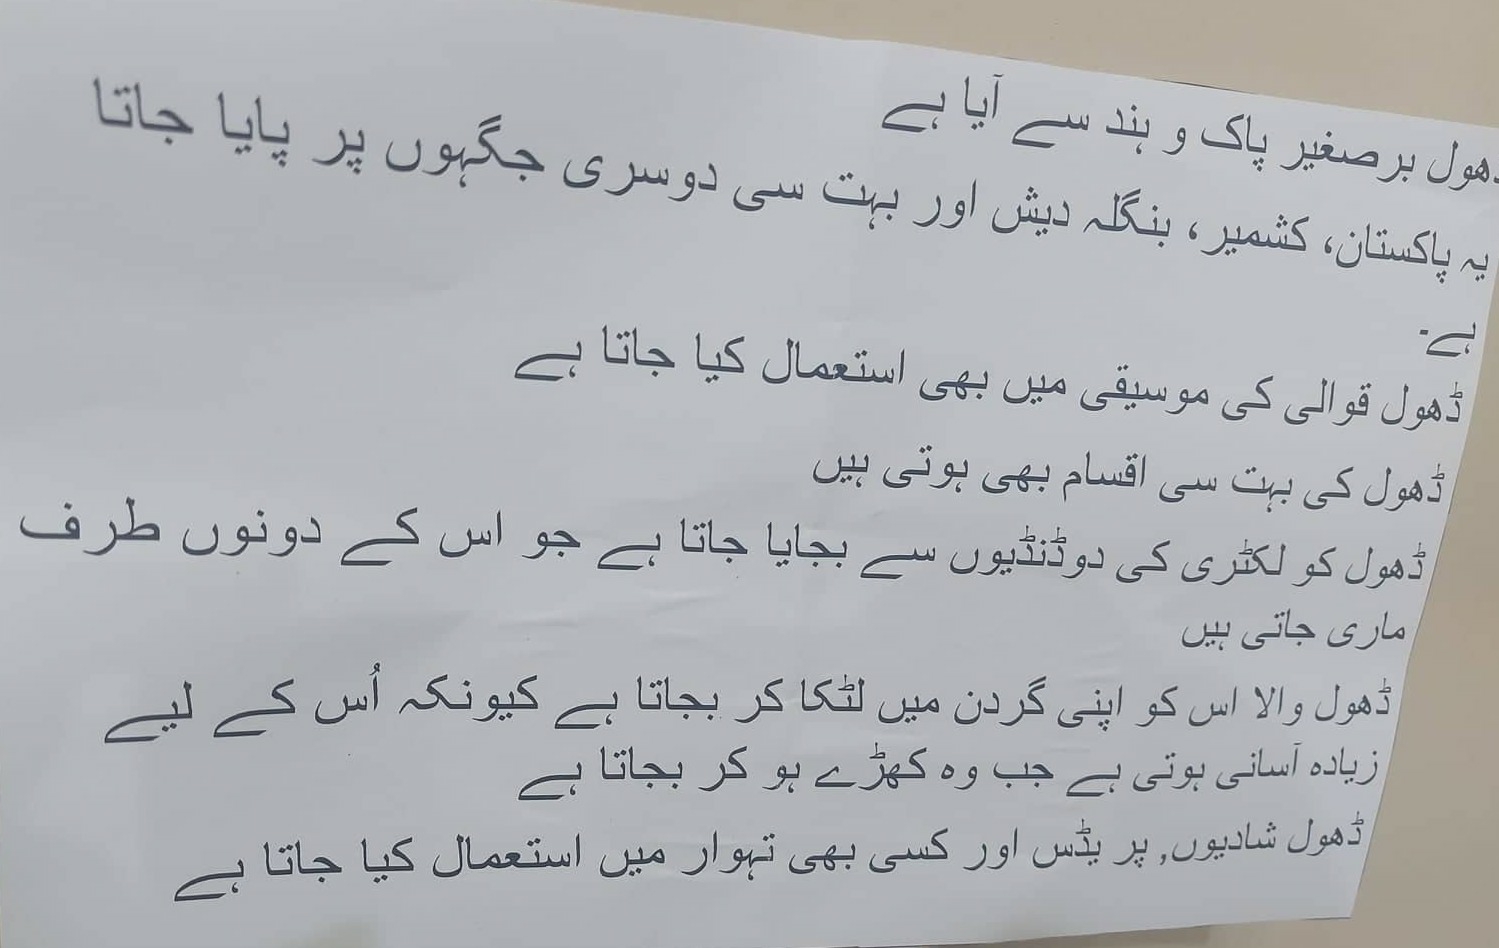 ڈھول برصغیر پاک و ہند سے آیا ہے
یہ پاکستان، کشمیر، بنگلہ دیش اور بہت سی دوسری جگہوں پر پایا جاتا
ہے۔
ڈھول قوالی کی موسیقی میں بھی استعمال کیا جاتا ہے
ڈھول کی بہت سی اقسام بھی ہوتی ہیں
ڈھول کو لکٹری کی دوڈنڈیوں سے بجایا جاتا ہے جو اس کے دونوں طرف
ماری جاتی ہیں
ڈھول والا اس کو اپنی گردن میں لٹکا کر بجاتا ہے کیونکہ اُس کے لیے
زیادہ آسانی ہوتی ہے جب وہ کھڑے ہو کر بجاتا ہے
ڈھول شادیوں, پر یڈس اور کسی بھی تہوار میں استعمال کیا جاتا ہے